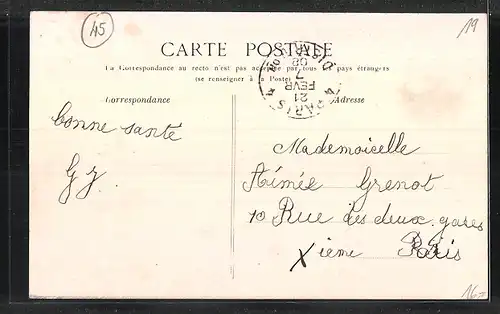 45
19
CARTE POSTALE
La Correspondance au recto n'est pas acceptée par tous les pays étrangers
(se renseigner à la Poste)
Correspondance
Adresse
PARIS
21
FEVR
7
08
DISTRIBUTION
bonne santé
G J.
Mademoiselle
Aimée Grenot
10 Rue des deux gares
Xieme Paris
16-